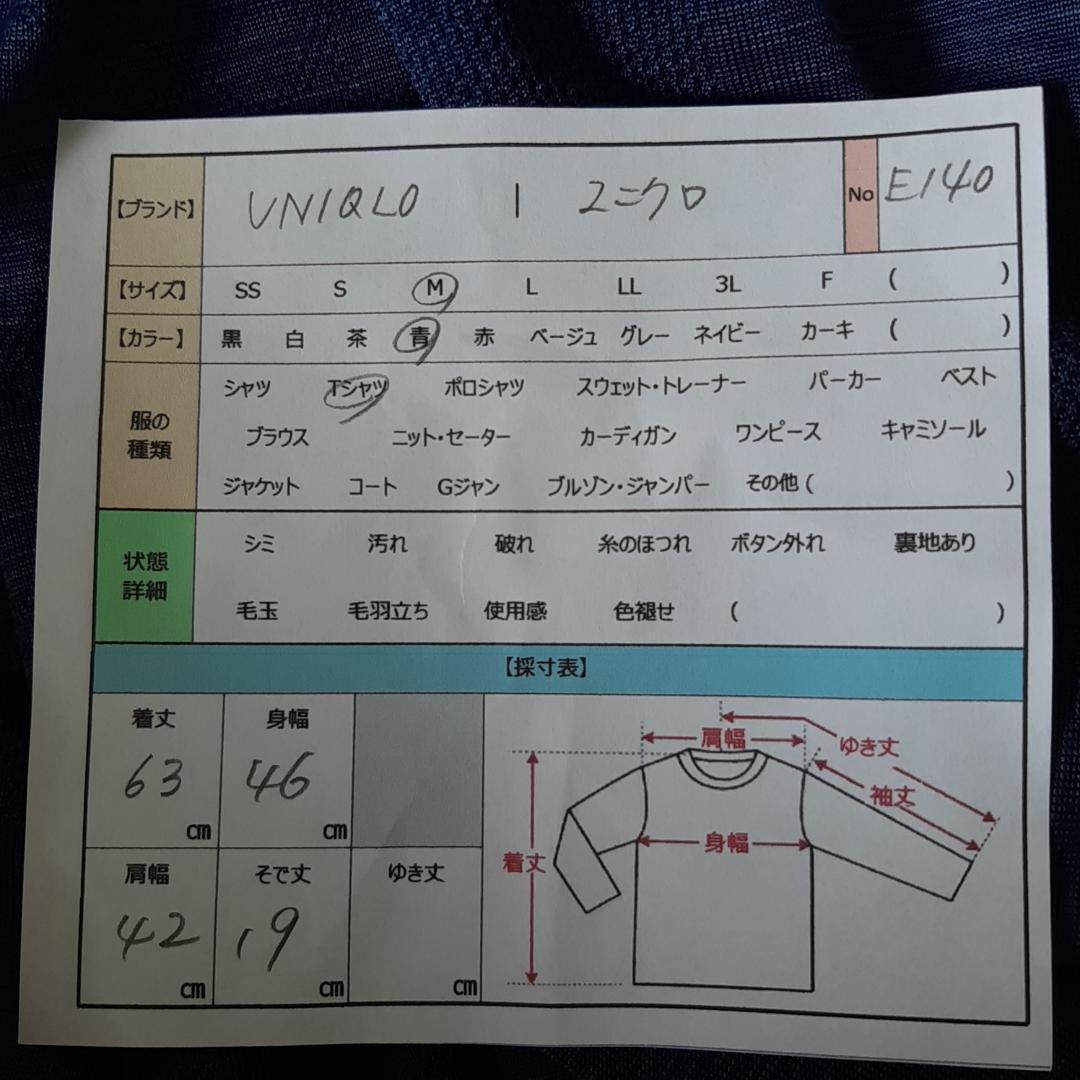 【ブランド】 UNIQLO | ユニクロ No E140
【サイズ】 SS S M L LL 3L F ( )
【カラー】 黒 白 茶 青 赤 ベージュ グレー ネイビー カーキ ( )
服の種類
シャツ Tシャツ ポロシャツ スウェット・トレーナー パーカー ベスト
ブラウス ニット・セーター カーディガン ワンピース キャミソール
ジャケット コート Gジャン ブルゾン・ジャンパー その他 ( )
状態詳細
シミ 汚れ 破れ 糸のほつれ ボタン外れ 裏地あり
毛玉 毛羽立ち 使用感 色褪せ ( )
【採寸表】
着丈 身幅
63 cm 46 cm
肩幅 そで丈 ゆき丈
42 cm 19 cm cm
肩幅 ゆき丈
袖丈
身幅
着丈